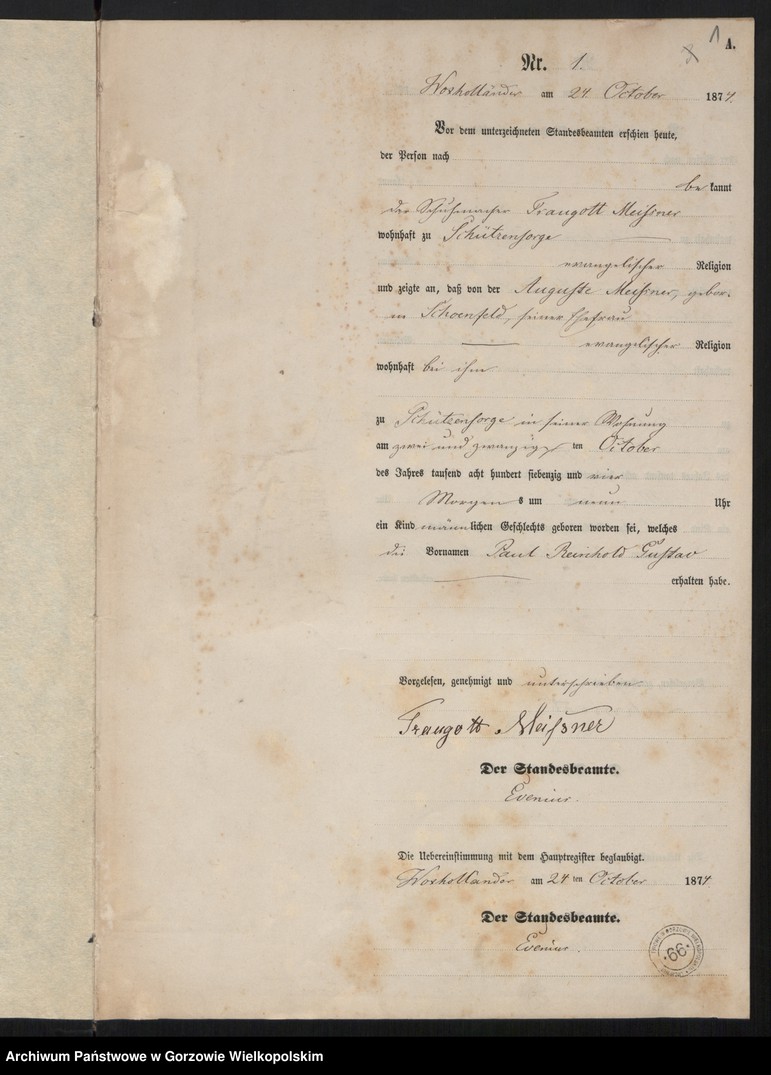 1 A.
Nr. 1.
Woxholländer am 24 October 1874.
Vor dem unterzeichneten Standesbeamten erschien heute,
der Person nach
be kannt
der Schuhmacher Traugott Meißner
wohnhaft zu Schützensorge
evangelischer Religion
und zeigte an, daß von der Auguste Meißner, gebor.
in Schoenfeld, seiner Ehefrau
evangelischer Religion
wohnhaft bei ihm
zu Schützensorge in seiner Wohnung
am zwei und zwanzigs ten October
des Jahres tausend acht hundert siebenzig und vier
Morgen s um neun Uhr
ein Kind männlichen Geschlechts geboren worden sei, welches
die Vornamen Paul Reinhold Gustav
erhalten habe.
Vorgelesen, genehmigt und unterschrieben
Traugott Meißner
Der Standesbeamte.
Evenius.
Die Uebereinstimmung mit dem Hauptregister beglaubigt.
Woxhollander am 24 ten October 1874
Der Standesbeamte.
Evenius.
66
Archiwum Państwowe w Gorzowie Wielkopolskim